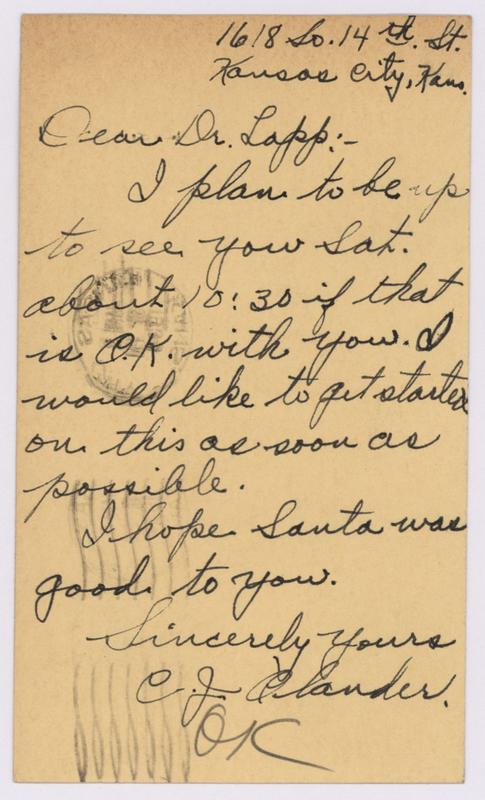 1618 So. 14th. St.
Kansas City, Kans.
Dear Dr. Lapp:-
I plan to be up
to see you Sat.
about 10:30 if that
is O.K. with you. I
would like to get started
on this as soon as
possible.
I hope Santa was
good to you.
Sincerely yours
C. J.
OK